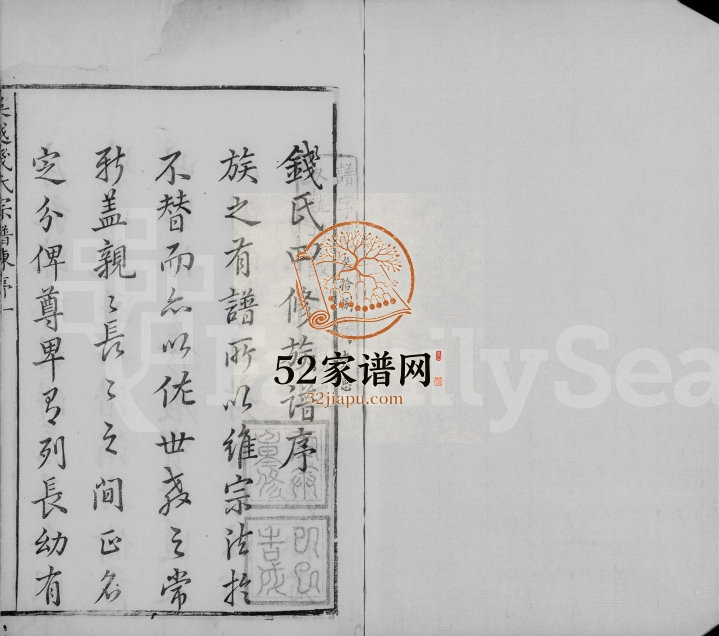 錢氏四修族譜序
族之有譜所以維宗法於
不替而亦以佐世教之常
新蓋親〻長〻之間正名
定分俾尊卑有列長幼有
吳越錢氏宗譜陳序一
52家谱网
52jiapu.com
FamilySea